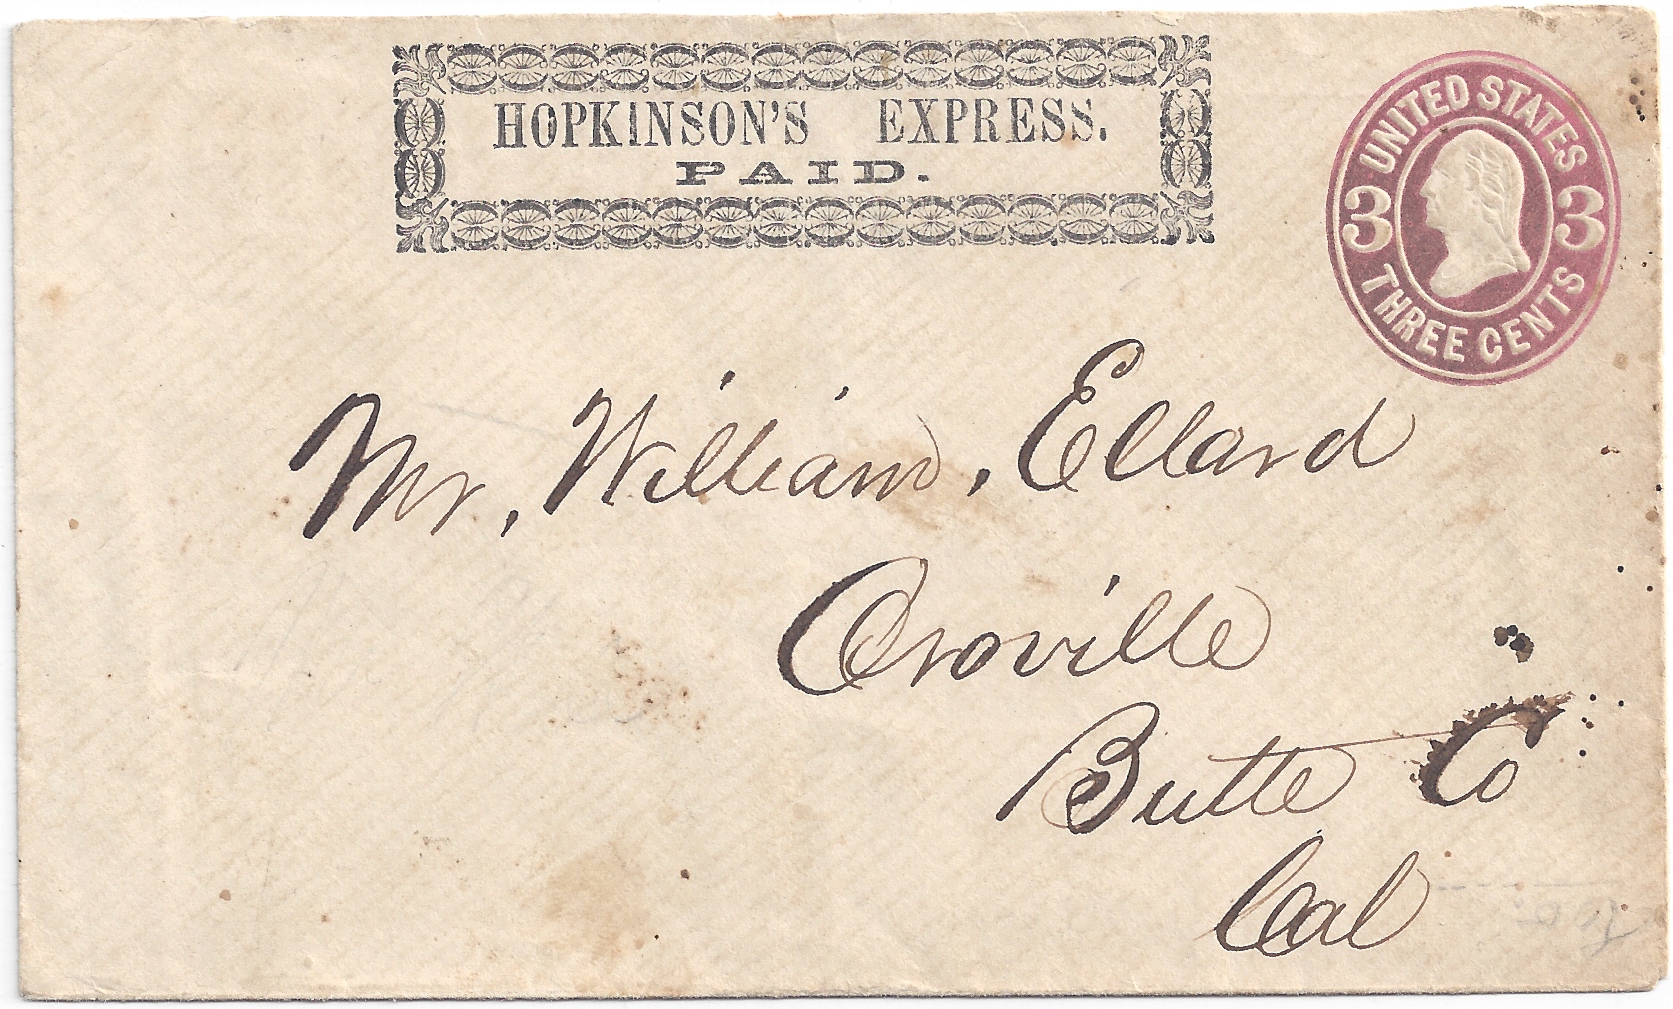 HOPKINSON'S EXPRESS.
PAID.
UNITED STATES
3 3
THREE CENTS
Mr, William, Ellard
Oroville
Butte Co
Cal